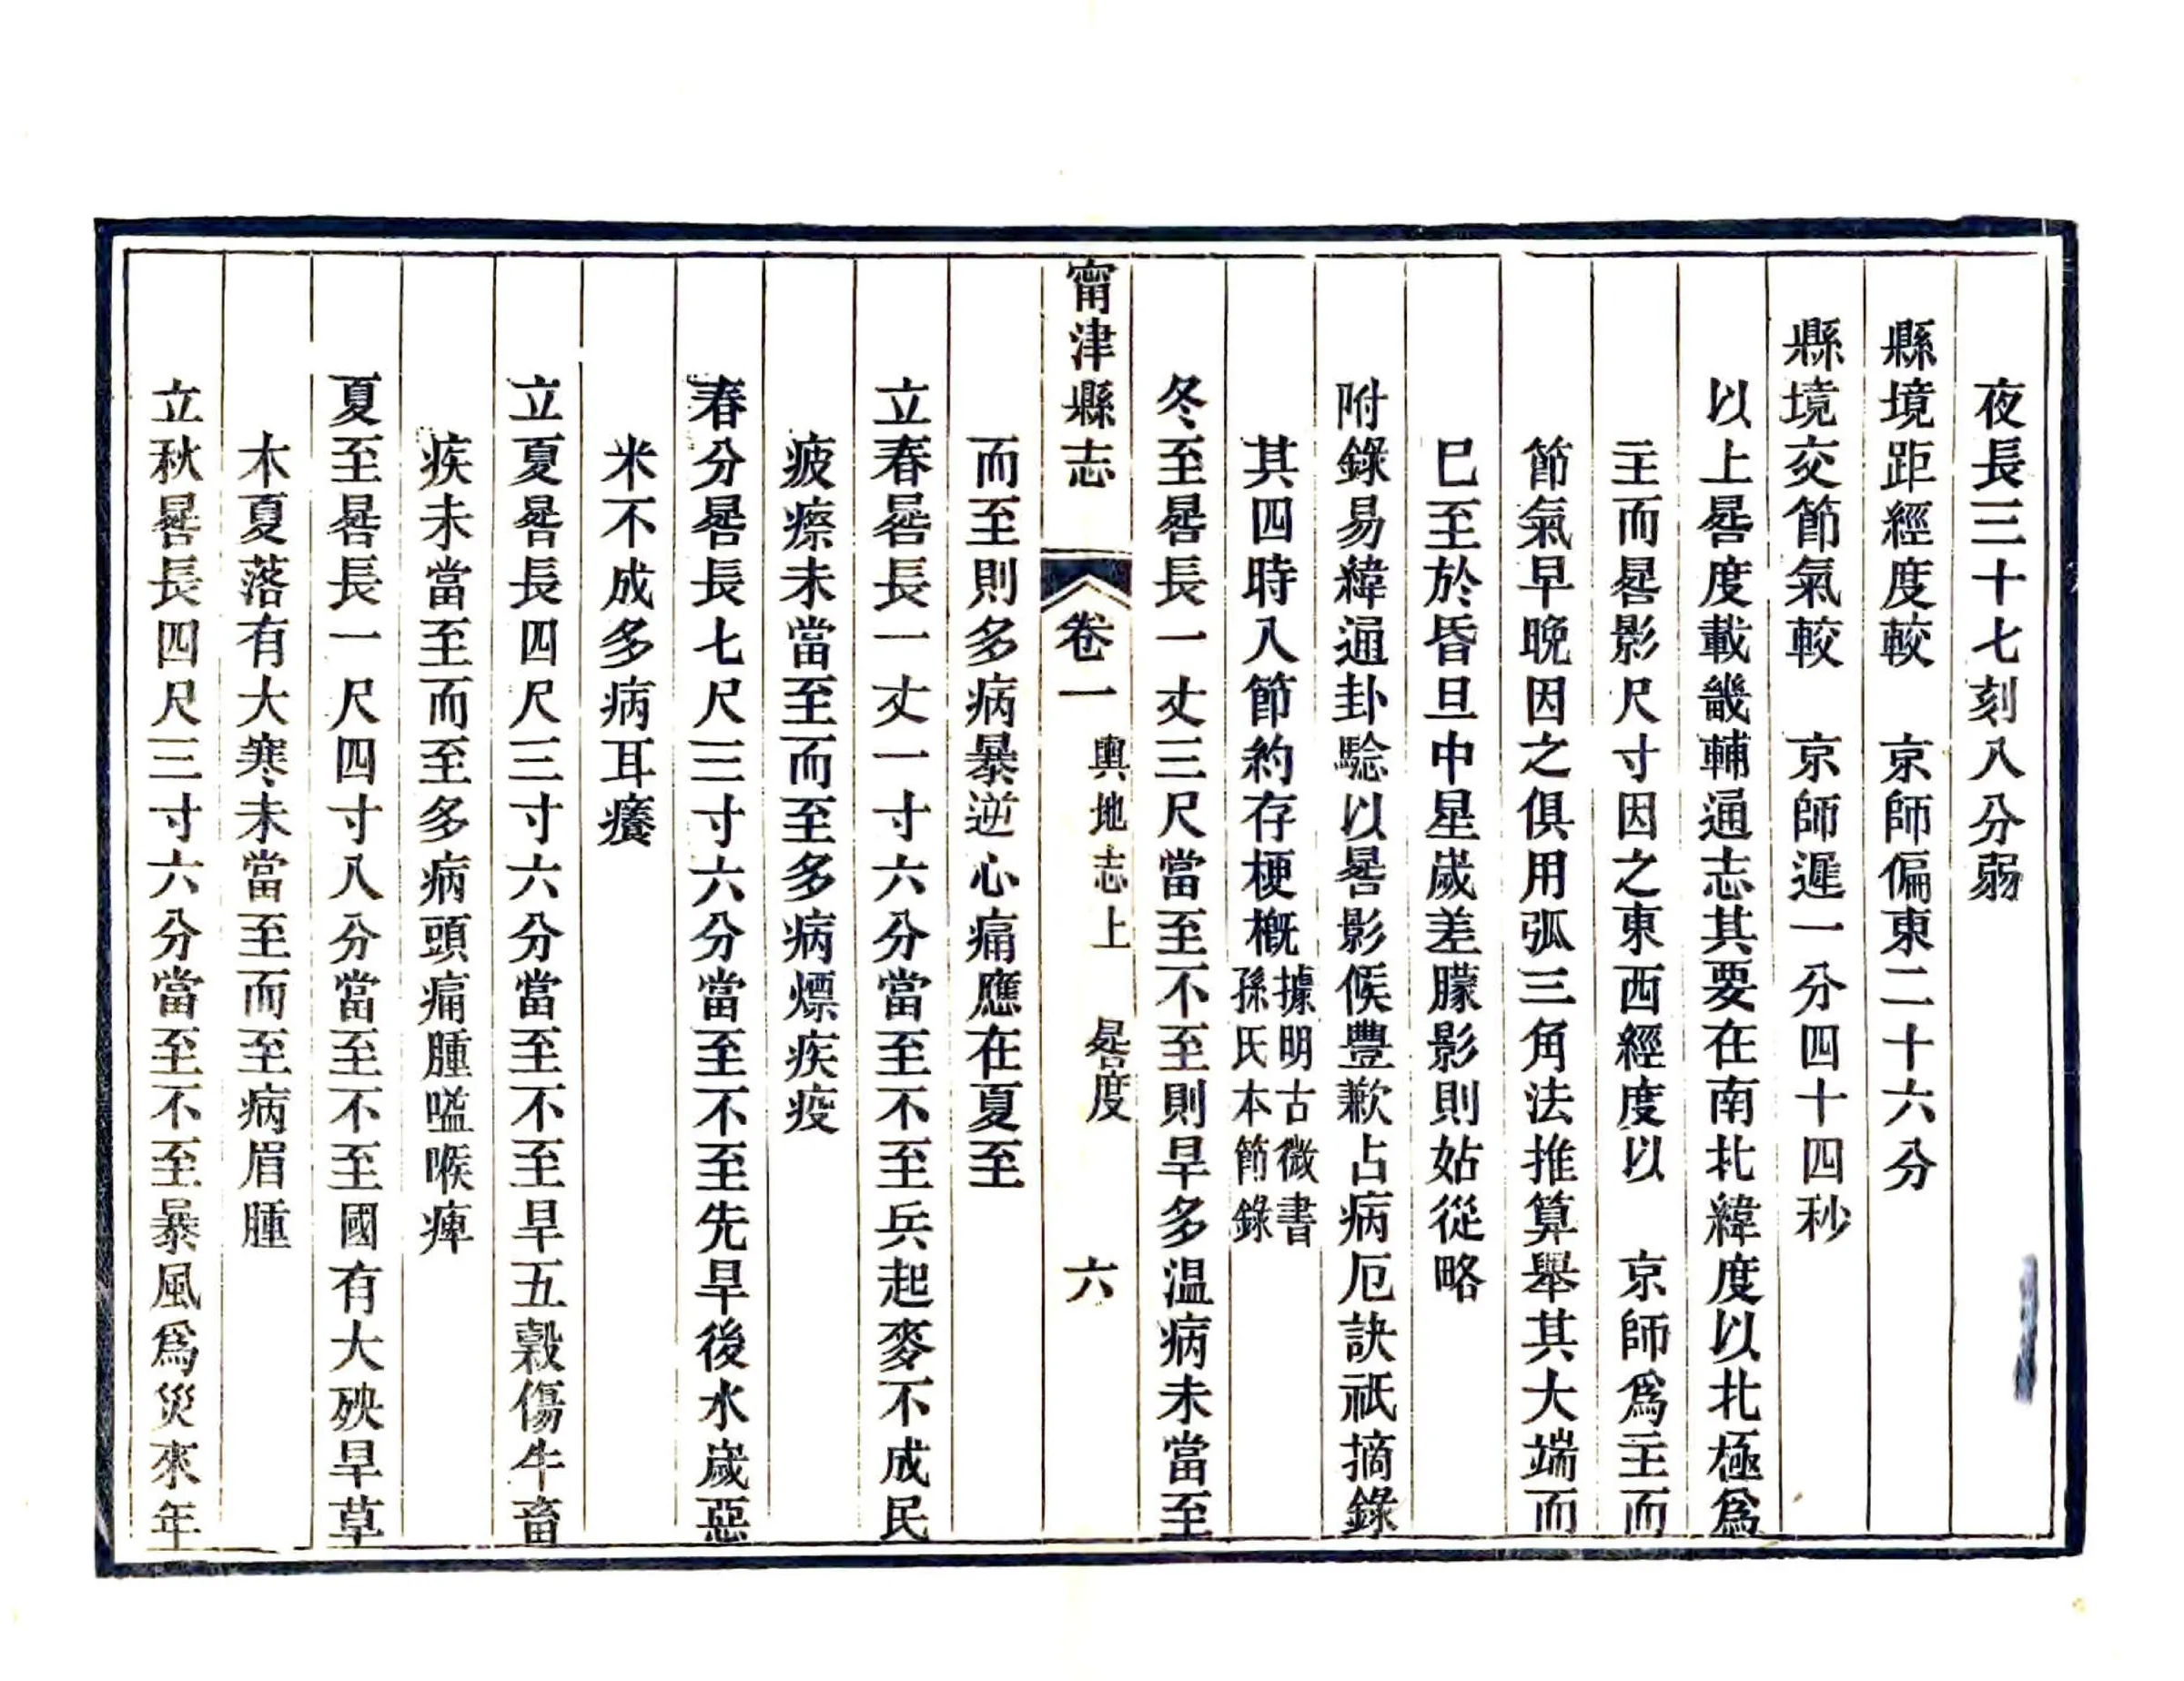 夜長三十七刻八分弱
縣境距經度較　京師偏東二十六分
縣境交節氣較　京師遲一分四十四秒
以上晷度載畿輔通志其要在南北緯度以北極爲
主而晷影尺寸因之東西經度以　京師爲主而
節氣早晚因之俱用弧三角法推算舉其大端而
巳至於昏旦中星歲差朦影則姑從略
附錄易緯通卦驗以晷影候豐歉占病厄訣祇摘錄
其四時八節約存梗概據明古微書孫氏本節錄
冬至晷長一丈三尺當至不至則旱多温病未當至
甯津縣志　卷一　輿地志上　晷度　六
而至則多病暴逆心痛應在夏至
立春晷長一丈一寸六分當至不至兵起麥不成民
疲瘵未當至而至多病熛疾疫
春分晷長七尺三寸六分當至不至先旱後水歲惡
米不成多病耳癢
立夏晷長四尺三寸六分當至不至旱五穀傷牛畜
疾未當至而至多病頭痛腫嗌喉痺
夏至晷長一尺四寸八分當至不至國有大殃旱草
木夏落有大寒未當至而至病眉腫
立秋晷長四尺三寸六分當至不至暴風爲災來年